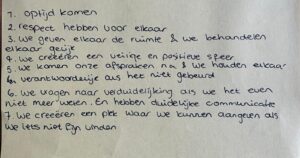 1. optijd komen
2. respect hebben voor elkaar
3. we geven elkaar de ruimte & we behandelen
elkaar gelijk
4. we creëeren een veilige en positieve sfeer
5. we komen onze afspraken na & we houden elkaar
verantwoordelijk als het niet gebeurd
6. we vragen naar verduidelijking als we het even
niet meer weten. En hebben duidelijke communicatie
7 we creëeren een plek waar we kunnen aangeven als
we iets niet fijn vinden